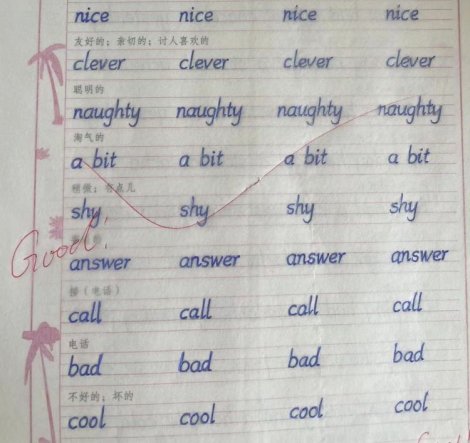 nice nice nice nice
友好的；亲切的；讨人喜欢的
clever clever clever clever
聪明的
naughty naughty naughty naughty
淘气的
a bit a bit a bit a bit
稍微；有点儿
shy shy shy shy
Good!
answer answer answer answer
接（电话）
call call call call
电话
bad bad bad bad
不好的；坏的
cool cool cool cool